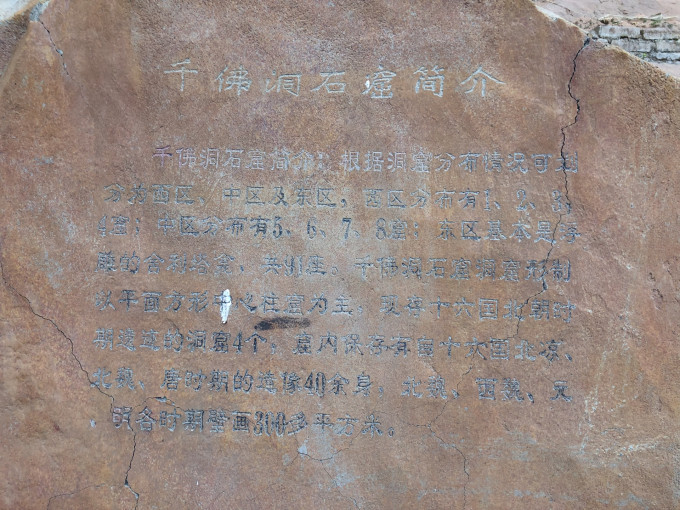 千佛洞石窟简介
千佛洞石窟简介: 根据洞窟分布情况可划
分为西区、中区及东区，西区分布有1、2、3、
4窟；中区分布有5、6、7、8窟；东区基本是
的舍利塔 共91座。千佛洞石窟洞窟形制
以平面方形中心柱窟为主，现存十六国北朝时
期造 的洞窟4个，窟内保存有自十六国北凉、
北魏、唐时期的造像40余身，北魏、西魏、元
明各时期壁画300多平方米。